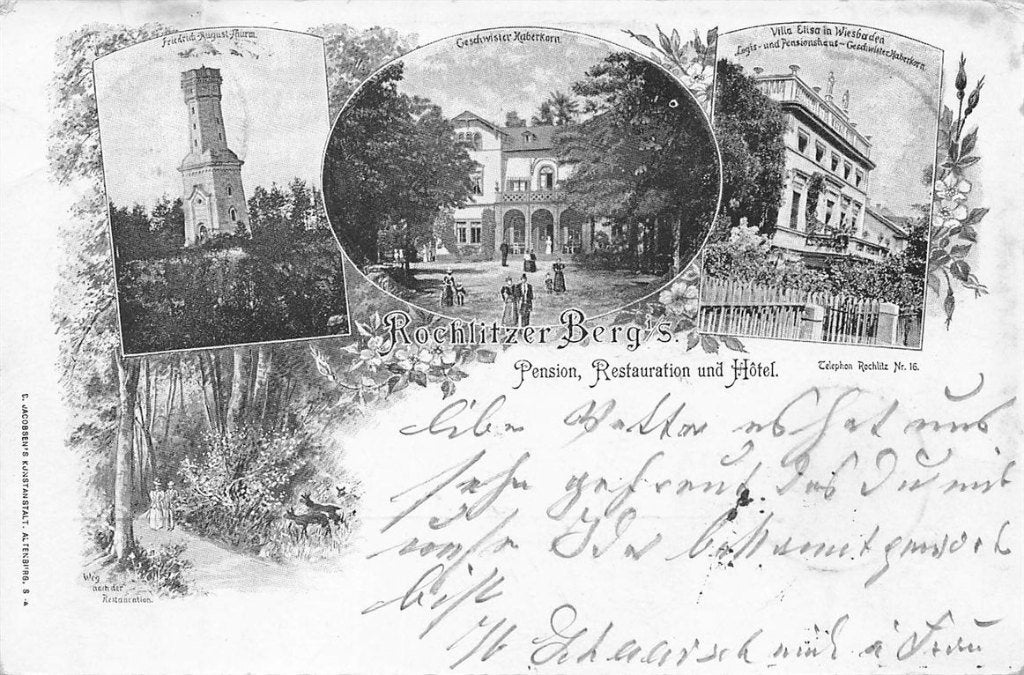 Friedrich-August-Thurm.
Geschwister Haberkorn.
Villa Elisa in Wiesbaden
Logis- und Pensionshaus-Geschwister Haberkorn.
Rochlitzer Berg's.
Pension, Restauration und Hôtel.
Telephon Rochlitz Nr. 16.
Weg
nach der
Restauration.
C. JACOBSEN'S KUNSTANSTALT, ALTENBURG, S.-A.
Vetter es hat uns
sehr gefreut das Du mit
bist